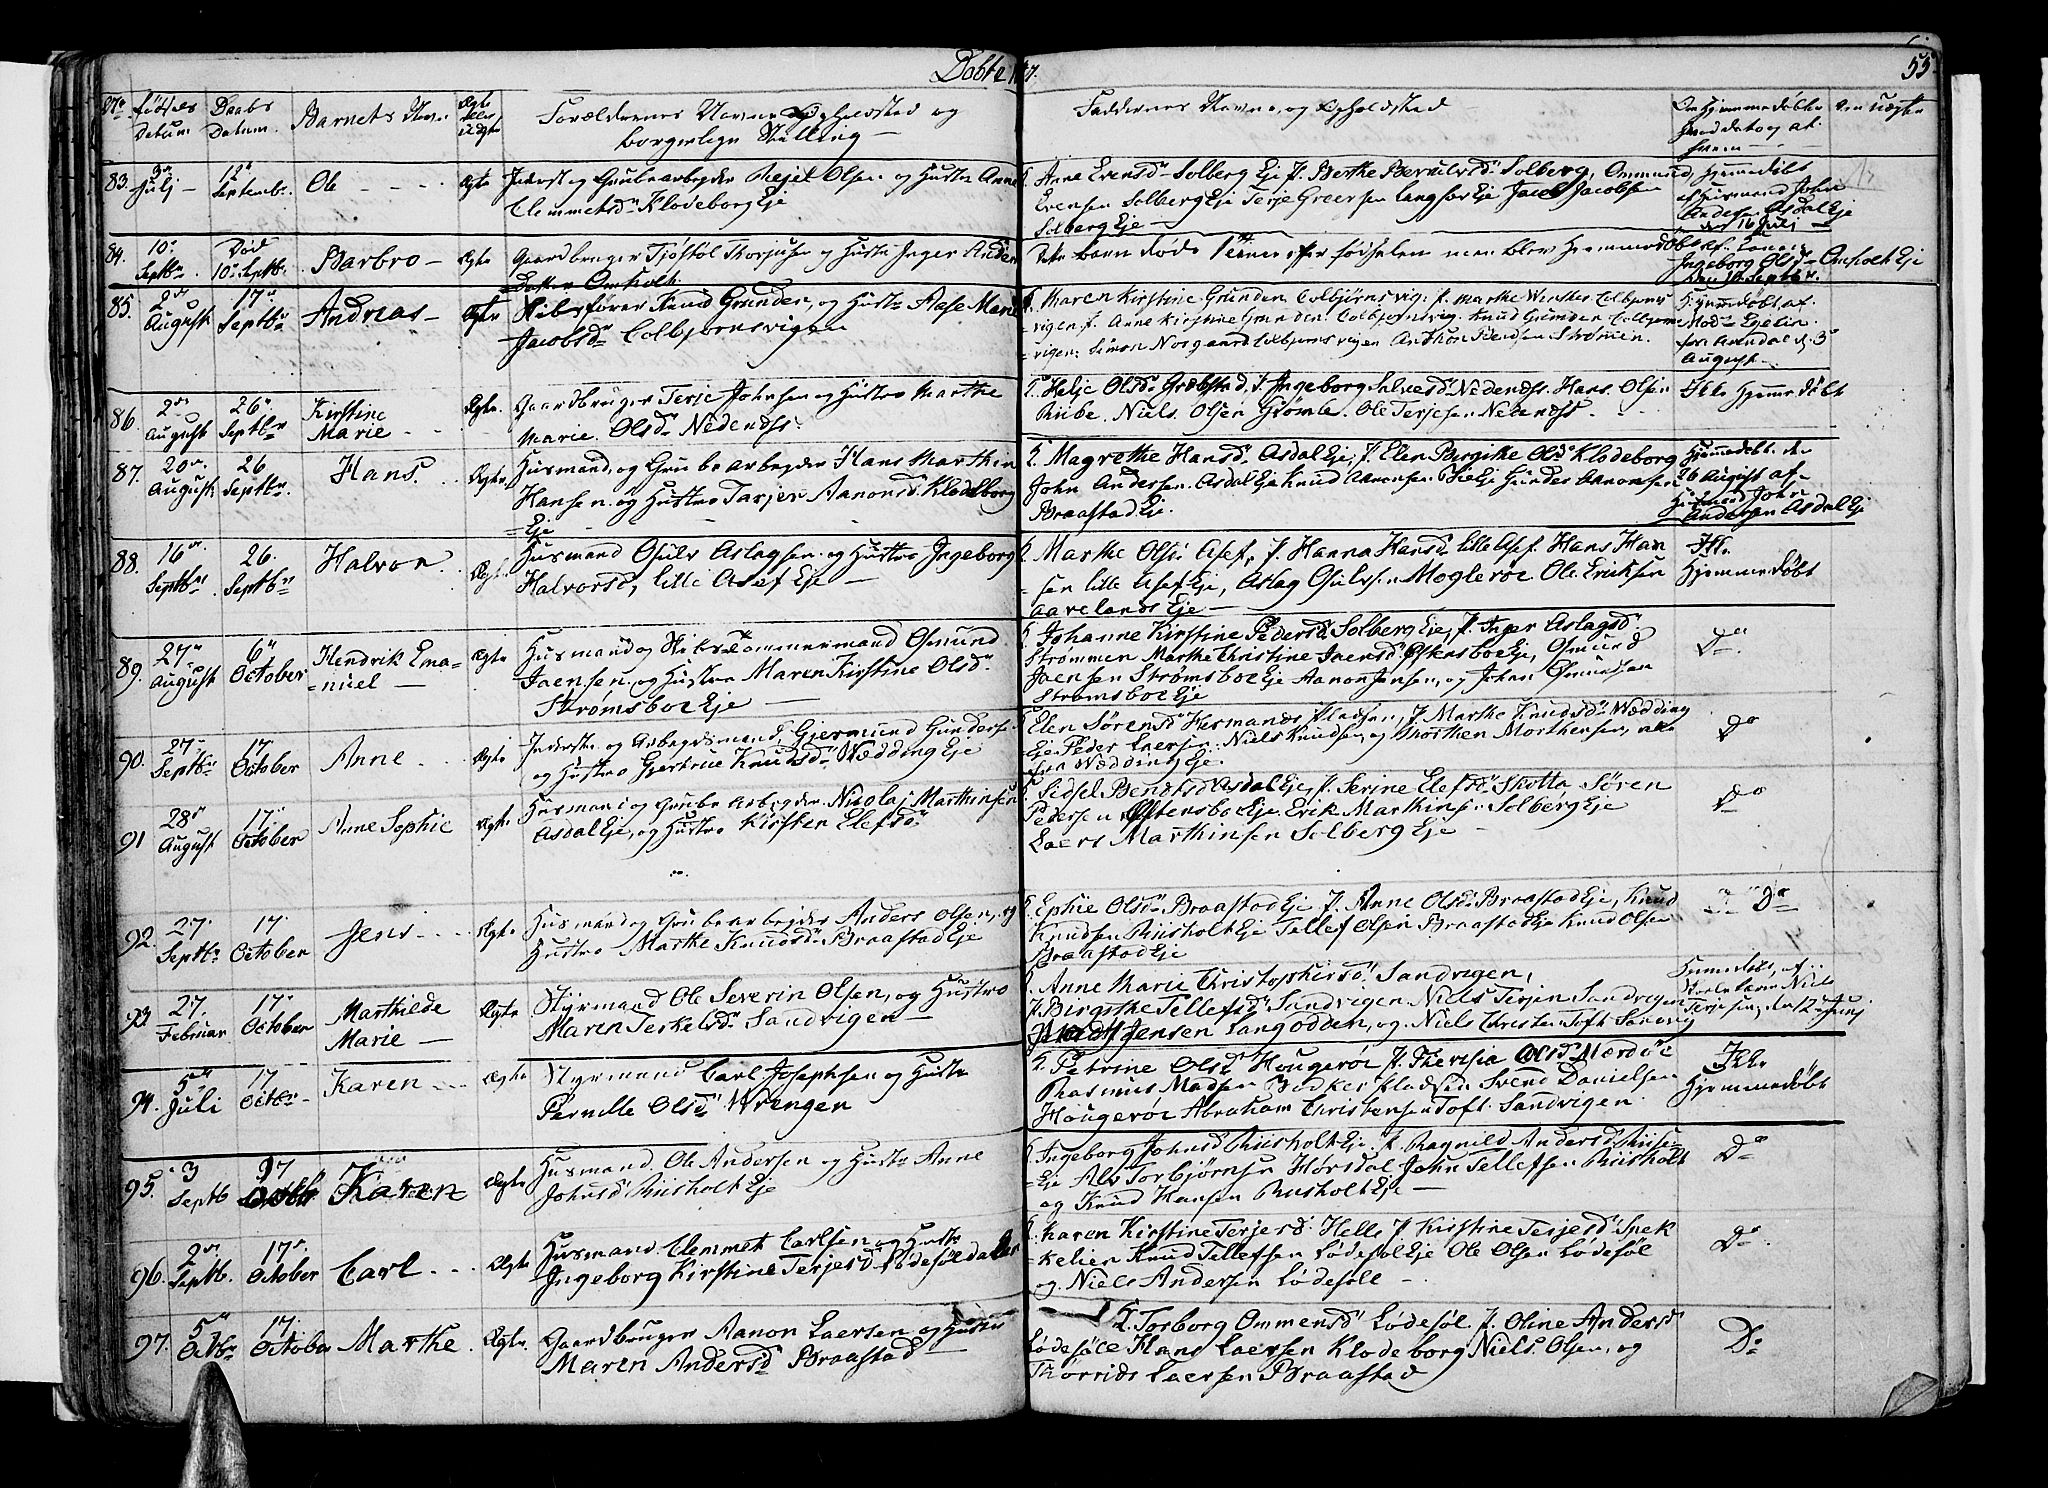 Døbte
55
No Fødsels Datum
Daabs Datum.
Barnets Navn
Ægte eller uægte
Forældrenes Navne Opholdssted og
borgerlige Stilling
Faddernes Navne, og Opholdssted
Om hjemmedøbte
83. Julj 12te Septembr. Ole Ægte
Inderst og Grubearbejder Kejel Olsen og Hustr Anne
Clemmetsdr Klodeborg Eje
Anne Evensdr Solberg Eje J. Berthe Solberg, Ommund
Evensen Solberg Eje Terje Greersen Langsæ Eje Jacob Jacobsen
Solberg Eje
hjemmedøbt
af Husmand John
Andersen Asdal Eje
den 16 Julj
84. 10de Septbr. Død 10de Septbr. Barbro Ægte
Gaardbruger Tjøstøl Thorjusen og Hustr Inger Anders
Datter Omholt.
Dette barn døde fødselen men blev hjemmedøbt af
Ingeborg Olsdr Omholt Eje
den 10 Septbr.
85. 2den August 17de Septbr Andreas Ægte
Skibsfører Knud Grunden, og Hustr Aase Marie
Jacobsdr Colbjørnsvigen
Maren Kirstine Grunden Colbjørnsvig J. Marthe Colbjørns
vigen J. Anne Kirstine Grunden Colbjørnsvig. Knud Grunden Colbjørns
vigen. Simon Norgaard Colbjørnsvigen Anthon Bendsen Strømmen.
Hjemmedøbt af
for Arendal d. 3
August
86. 2den August 26de Septbr Kirstine Marie Ægte.
Gaardbruger Terje Johnsen og Hustro Marthe
Marie Olsdr Nedenæs
Helje Olsdr Græbstad, J. Ingeborg Salvesdr Nedenæs. Hans Olsen
Vribe. Niels Olsen Grømle. Ole Terjesen Nedenæs.
Ikke hjemmedøbt
87. 20de August 26 Septbr. Hans. Ægte.
Husmand og Grubearbejder Hans Marthin
Hansen og Hustro Tarjer Aanonsdr Klodeborg
Eje
Magrethe Hansdr Asdal Eje, J. Elen Birgithe Olsdr Klodeborg
John Andersen Asdal Eje Knud Aanonsen Gunder Aanonsen
Braastad Eje.
Hjemmedøbt den
26 August af
Husmand John
Andersen Asdal Eje
88. 16de Septbr 26. Septbr Halvor Ægte.
Husmand Osulv Aslagsen og Hustro Ingeborg
Halvorsd. lille Asef Eje
Marthe Olsdr Asef, J. Hanna Hansdr lille Asef. Hans Han
sen lille Asef Eje, Aslag Osulvsen Moglerøe Ole Eriksen
Aarelands Eje
Ikke
hjemmedøbt
89. 27de August 6te October Hendrik Ema-
nuel Ægte
Husmand og Skibstømmermand Osmund
Jaensen og Hustro Maren Kirstine Olsdr
Strømsboe Eje
Johanne Kirstine Pedersd. Solberg Eje, J. Inger Aslagsdr
Strømmen Marthe Christine Jaensd. Østensboe Eje, Osmund
Jaensen Strømsboe Eje Aanon Jensen, og Johan Osmundsen
Strømsboe Eje
Do.
90. 27de Septbr 17 October Anne Ægte
Inderste og Arbejdsmand, Gjermund Gunderse-
og Hustro Gjertrue Knudsdr Wædding Eje
Elen Sørensdr Hermands Pladsen, J. Marthe Knudsdr Wædding
Eje Peder Laersen Niels Knudsen og Morthen Morthensen, alle
fra Wædding Eje.
Do
91 28de August 17. October Anne Sophie Ægte
Husmand og Grubearbejder Nicolaj Marthinsen
Asdal Eje, og Hustro Kirsten Elefsdr
Sidsel Bendtsd. Asdal Eje, J. Serine Elefsdr Skotta Søren
Pedersen Østensboe Eje. Erik Marthinsen Solberg Eje
Laers Marthinsen Solberg Eje
Do
92. 27. Septbr 17. October Jens Ægte
Husmand og Grubearbejder Anders Olsen, og
Hustro Marthe Knudsdr Braastad Eje
Ephie Olsdr Braastad Eje J. Anne Olsd. Braastad Eje, Knud
Knudsen Riisholt Eje Tellef Olsen Braastad Eje Knud Olsen
Braastad Eje
Do
93. 27. Februar 17de October Marthilde
Marie Ægte
Styrmand Ole Severin Olsen, og Hustro
Maren Terkelsdr Sandvigen
Anne Marie Christophersdr Sandvigen,
J. Birgithe Tellefsdr Sandvigen Niels Terjesen Sandvigen
Jensen Langodden, og Niels Christen Toft Sandvig
Hjemmedøbt, af
Skolelærer Niels
Terjesen, den 12 Junj
94. 5te Juli 17 Octbr Karen Ægte
Styrmand Carl Josephsen og Hustr
Pernille Olsdr Wrengen
Petrine Olsdr Hougerøe J. Theresia Olsdr Merdøe
Rasmus Madsen Svend Danielsen
Hougerøe Abraham Christensen Toft Sandvigen.
Ikke
hjemmedøbt
95. 3 Septb 17 Octb Karen Ægte
Husmand Ole Andersen og Hustr Anne
Johnsdr Riisholt Eje
Ingeborg Johnsdr Riisholt Eje J. Ragnild Andersd. Riise
Eje Alv Torbjørnsen Hørsdal John Tellefsen Riisholt
og Knud Hansen Riisholt Eje
Do
96. 2den Septb. 17de October Carl Ægte
Husmand Clemmet Carlsen og Hustr
Ingeborg Kirstine Terjesdr Lødesøldalen
Karen Kirstine Terjesdr Helle J. Kirstine Terjesd. Snek
kelien Knud Tellefsen Lødesøl Eje Ole Olsen Lødesøl
og Niels Andersen Lødesøle
Do
97. 5te Octbr 17. October Marthe Ægte.
Gaardbruger Aanon Laersen og Hustr
Maren Andersdr Braastad
Torborg Ommensd. Lødesøl J. Oline Andersd
Lødesøle Hans Laersen Klodeborg Niels Olsen, og
Thorrids Laersen Braastad
Do